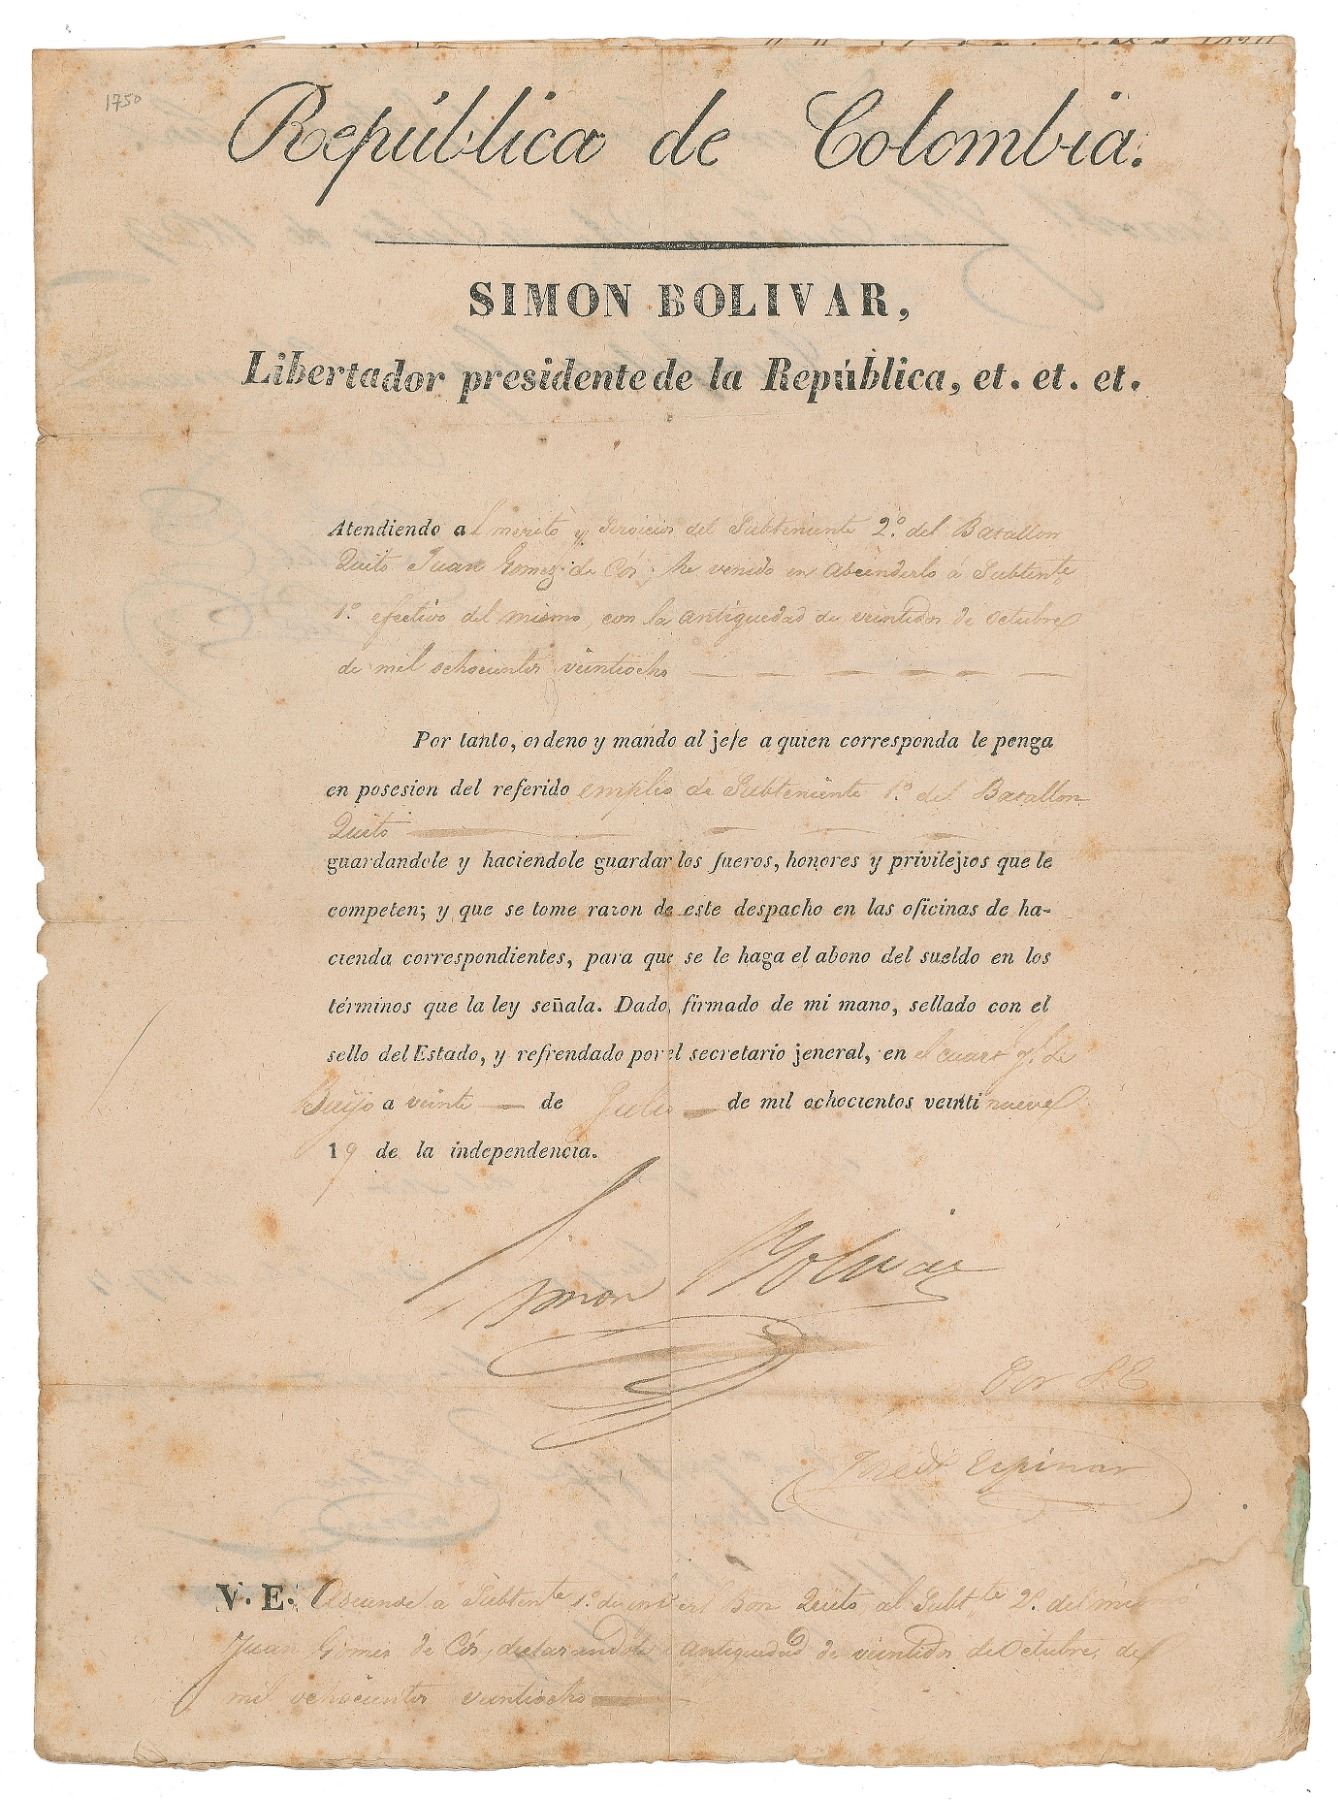 1750
República de Colombia.
SIMON BOLIVAR,
Libertador presidente de la República, et. et. et.
Atendiendo al merito y servicios del Subteniente 2.º del Batallon
Quito Juan Gomez de Cós, he venido en ascenderlo á Subtente
1.º efectivo del mismo, con la antiguedad de veintidos de octubre
de mil ochocientos veintiocho
Por tanto, ordeno y mando al jefe a quien corresponda le penga
en posesion del referido empleo de Subteniente 1.º del Batallon
Quito
guardandole y haciendole guardar los fueros, honores y privilejios que le
competen; y que se tome razon de este despacho en las oficinas de ha-
cienda correspondientes, para que se le haga el abono del sueldo en los
términos que la ley señala. Dado, firmado de mi mano, sellado con el
sello del Estado, y refrendado por el secretario jeneral, en el cuart gl. de
Buijo a veinte de Julio de mil ochocientos veinti nueve
19 de la independencia.
Simon Bolivar
Por S E
José D. Espinar
V. E. Asciende a Subtente 1.º del Bon Quito al Subtte 2.º del mismo
Juan Gomez de Cós, declarandole antiguedad de veintidos de Octubre de
mil ochocientos veintiocho